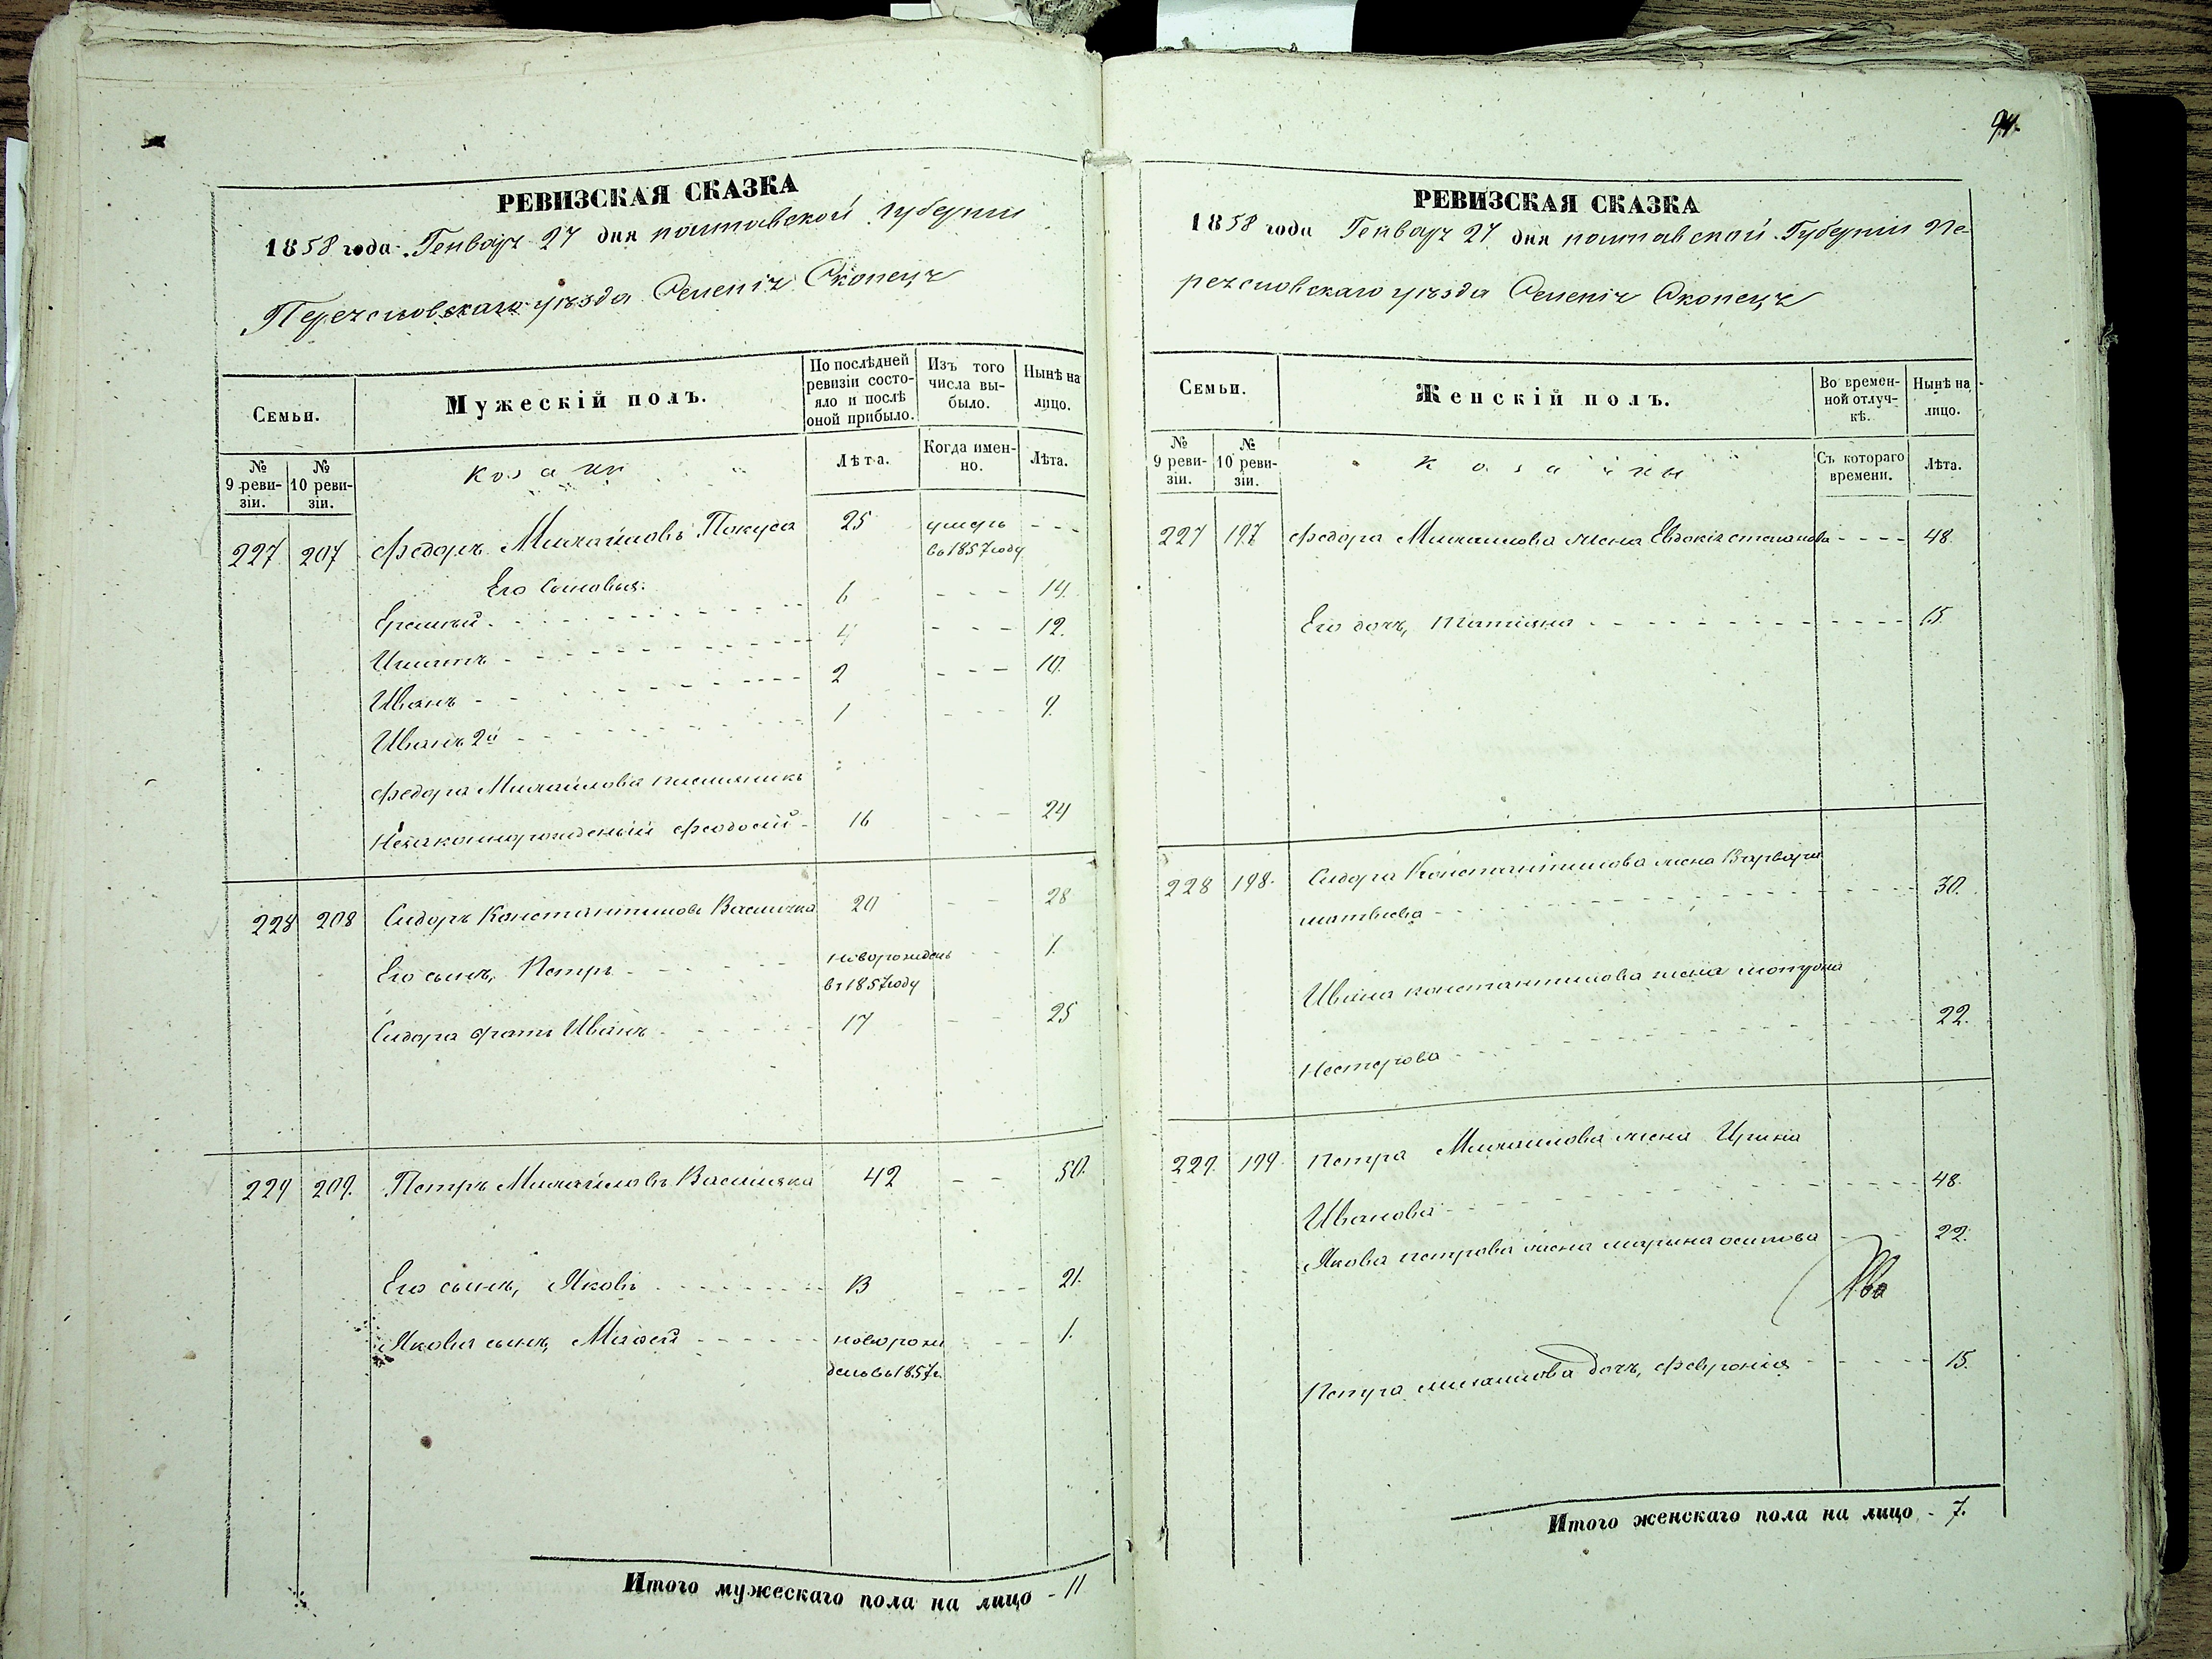 94.
РЕВИЗСКАЯ СКАЗКА
1858 года Генваря 27 дня полтавской губернии
Переясловскаго уѣзда Селенія Скопецъ
Семьи.
Мужескій полъ.
По послѣдней ревизіи состояло и послѣ оной прибыло.
Изъ того числа выбыло.
Нынѣ на лицо.
№ 9 ревизіи.
№ 10 ревизіи.
Козаки
Лѣта.
Когда именно.
Лѣта.
227 207 Федоръ Михайловъ Покуса 25 умеръ - - -
въ 1857 году
Его сыновья:
Еремѣй - - - 6 - - - 14.
Игнатъ - - - 4 - - - 12.
Иванъ - - - 2 - - - 10.
Иванъ 2й - - - 1 - - - 9.
Федора Михайлова племянникъ
Незаконнорожденый Феодосій - 16 - - - 24
228 208 Сидоръ Константиновъ Василчка 20 - - 28
Его сынъ, Петръ - - - новорожденъ - - 1.
въ 1857 году
Сидора братъ Иванъ - - - 17 - - 25
229 209. Петръ Михайловъ Василяка 42 - - 50.
Его сынъ, Яковъ - - - 13 - - - 21.
Якова сынъ, Мойсей - - - новорож - - - 1.
денъ въ 1857 г.
Итого мужескаго пола на лицо - 11
РЕВИЗСКАЯ СКАЗКА
1858 года Генваря 27 дня полтавской Губерніи Пе-
реясловскаго уѣзда Селенія Скопецъ
Семьи.
Женскій полъ.
Во временной отлучкѣ.
Нынѣ на лицо.
№ 9 ревизіи.
№ 10 ревизіи.
Козачки
Съ котораго времени.
Лѣта.
227 197 Федора Михаилова жена Евдокія степанова - - - - 48
Его дочь, Татіяна - - - 15.
228 198. Сидора Константинова жена Варвара
матвѣева - - - 30.
Ивана константинова жена мотрона
Нестерова - - - 22.
229. 199. Петра Михаилова жена Ирина
Иванова - - - 48.
Якова петрова жена марина осипова - - 22.
Петра михаилова дочь, Февронія - - - 15.
Итого женскаго пола на лицо - 7.